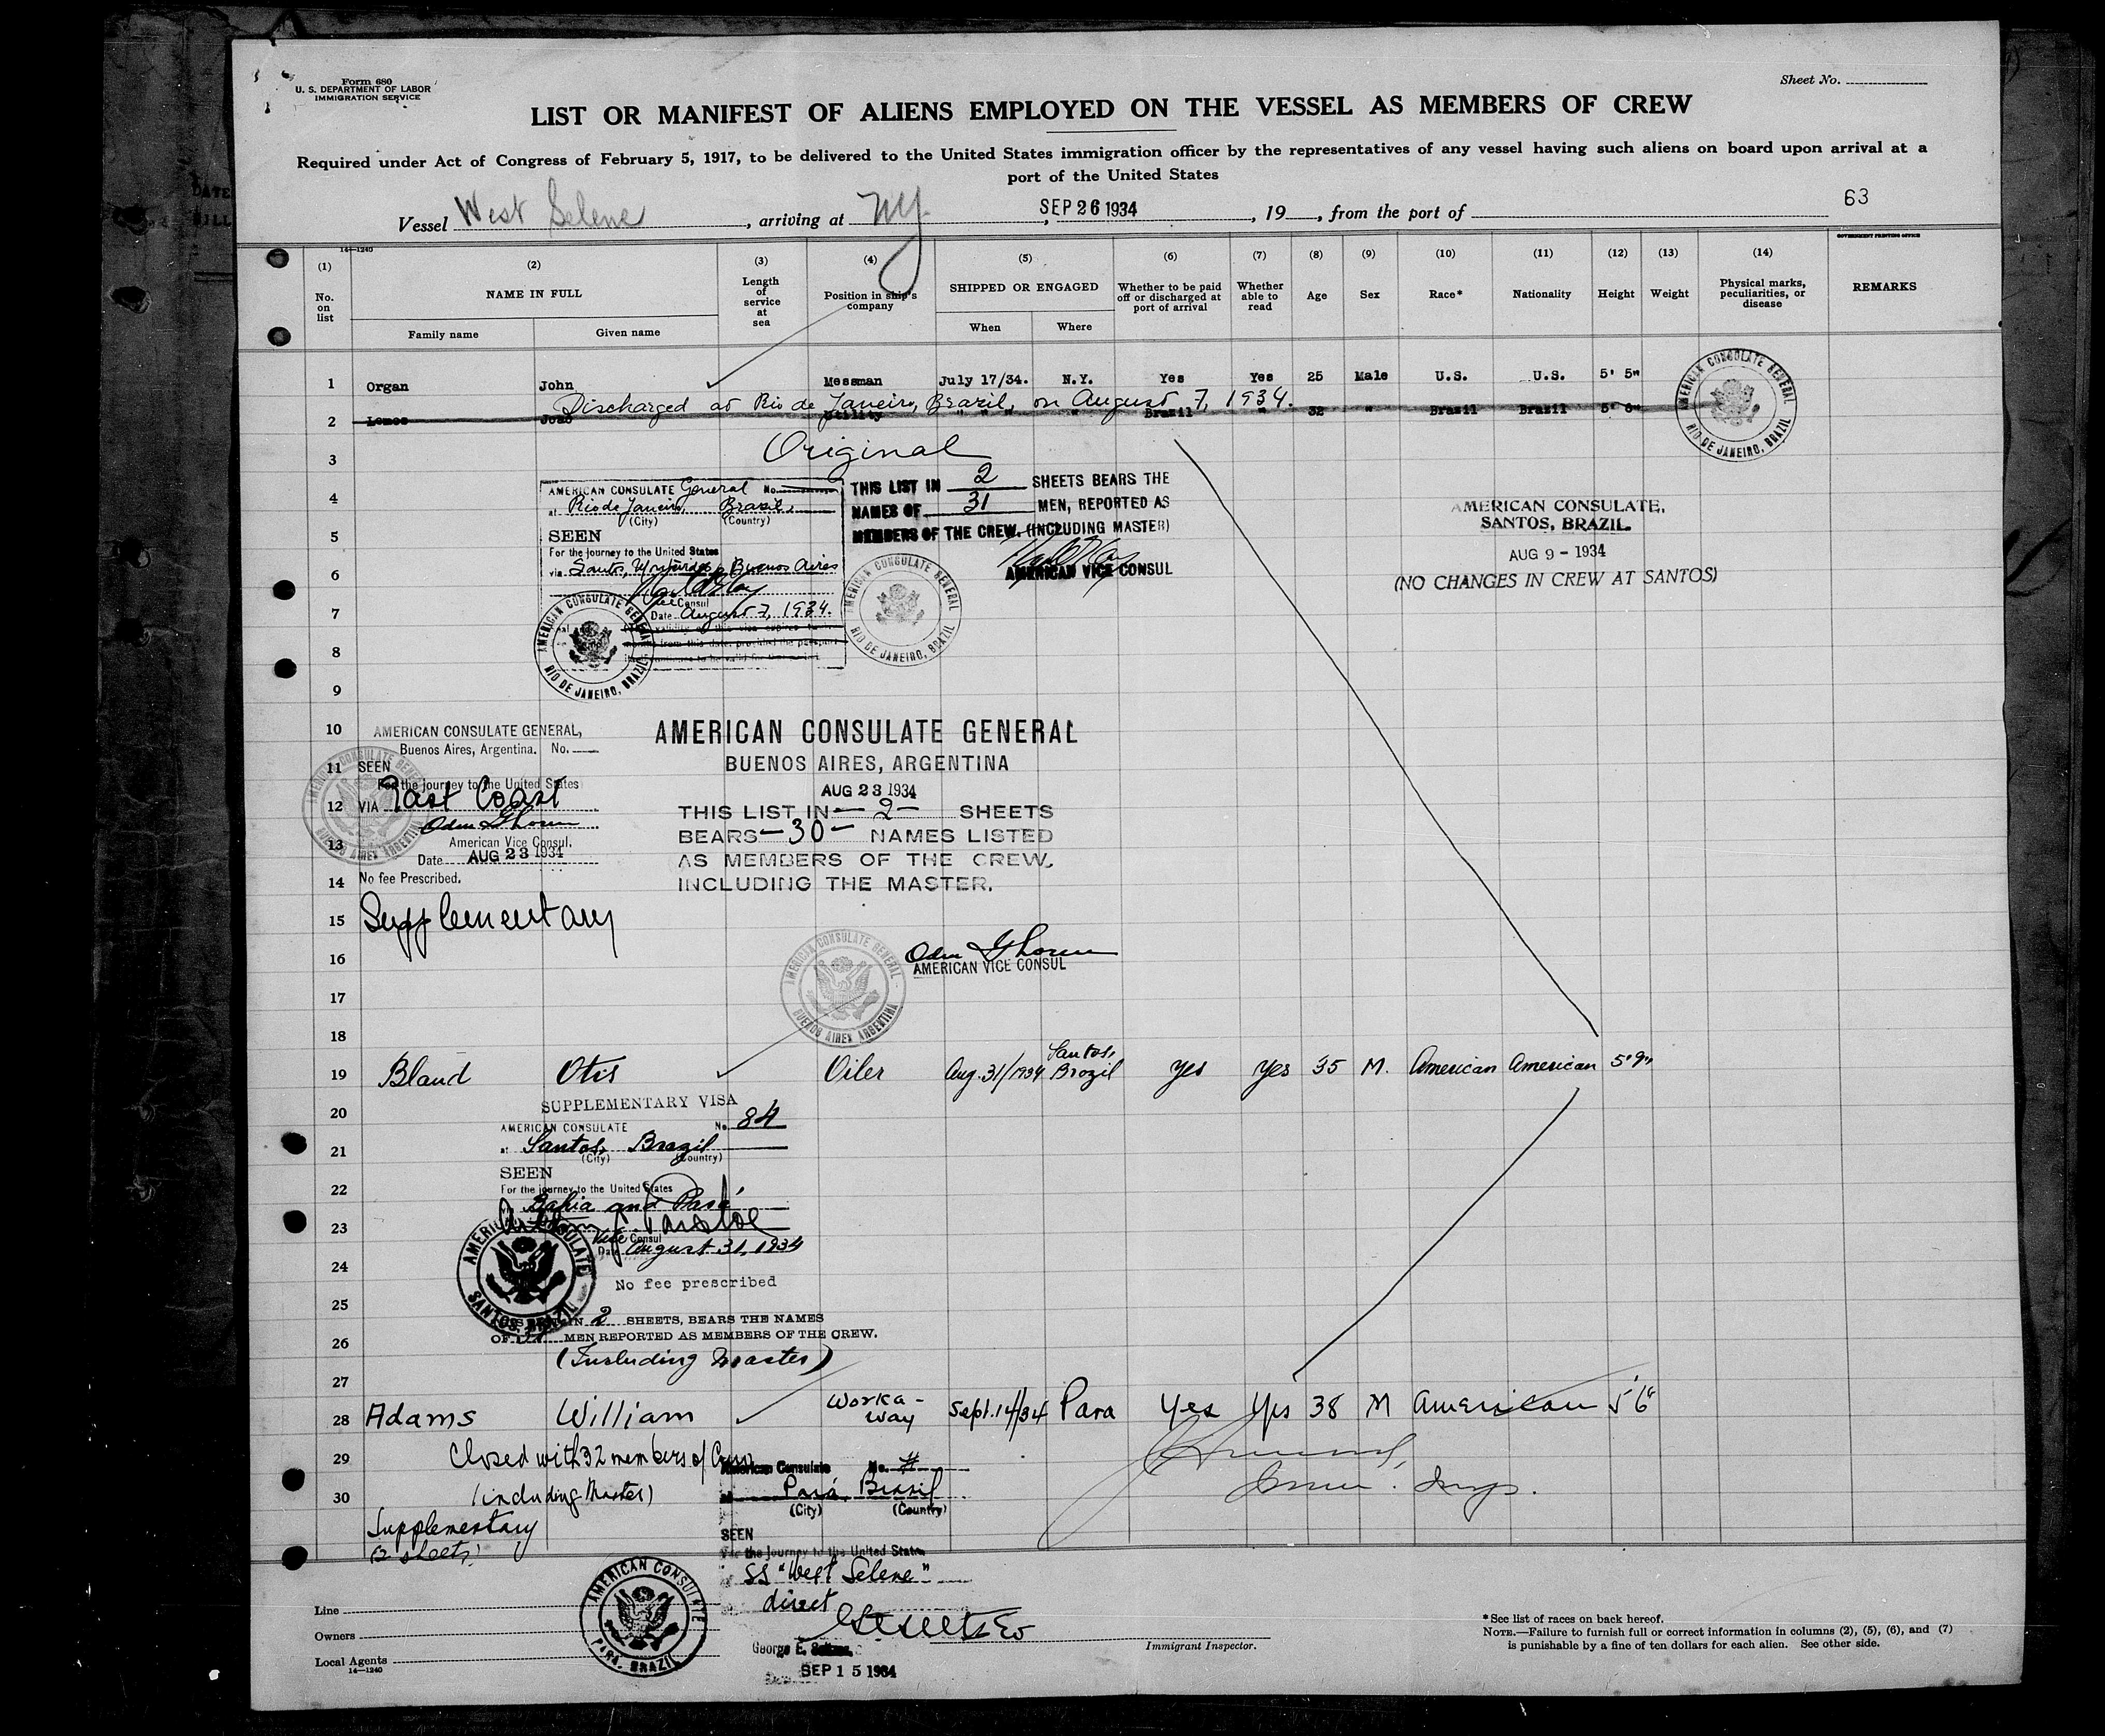 Form 680
U. S. DEPARTMENT OF LABOR
IMMIGRATION SERVICE
Sheet No.
LIST OR MANIFEST OF ALIENS EMPLOYED ON THE VESSEL AS MEMBERS OF CREW
Required under Act of Congress of February 5, 1917, to be delivered to the United States immigration officer by the representatives of any vessel having such aliens on board upon arrival at a
port of the United States
Vessel West Selene, arriving at NY, SEP 26 1934, 19, from the port of
63
14—1240
GOVERNMENT PRINTING OFFICE
(1) (2) (3) (4) (5) (6) (7) (8) (9) (10) (11) (12) (13) (14)
No. on list
NAME IN FULL
Family name
Given name
Length of service at sea
Position in ship's company
SHIPPED OR ENGAGED
When
Where
Whether to be paid off or discharged at port of arrival
Whether able to read
Age
Sex
Race*
Nationality
Height
Weight
Physical marks, peculiarities, or disease
REMARKS
1 Organ John Messman July 17/34. N.Y. Yes Yes 25 Male U.S. U.S. 5' 5"
Discharged at Rio de Janeiro, Brazil, on August 7, 1934.
2 Lemos Joao Utility " " " " Brazil " 32 " Brazil Brazil 5' 6"
AMERICAN CONSULATE GENERAL
RIO DE JANEIRO, BRAZIL
3 Original
4 AMERICAN CONSULATE General No.
at Rio de Janeiro, Brazil,
(City) (Country)
5 SEEN
For the journey to the United States
6 via Santos, Buenos Aires
Vice Consul
7 Date August 7, 1934.
8
9
AMERICAN CONSULATE GENERAL
RIO DE JANEIRO, BRAZIL
THIS LIST IN 2 SHEETS BEARS THE
NAMES OF 31 MEN, REPORTED AS
MEMBERS OF THE CREW. (INCLUDING MASTER)
AMERICAN VICE CONSUL
AMERICAN CONSULATE GENERAL
RIO DE JANEIRO, BRAZIL
AMERICAN CONSULATE,
SANTOS, BRAZIL.
AUG 9 - 1934
(NO CHANGES IN CREW AT SANTOS)
10 AMERICAN CONSULATE GENERAL,
Buenos Aires, Argentina. No.
11 SEEN
For the journey to the United States
12 VIA East Coast
13 American Vice Consul.
Date AUG 23 1934
14 No fee Prescribed.
15 Supplementary
16
17
18
AMERICAN CONSULATE GENERAL
BUENOS AIRES, ARGENTINA
AUG 23 1934
THIS LIST IN — 2 — SHEETS
BEARS — 30 — NAMES LISTED
AS MEMBERS OF THE CREW,
INCLUDING THE MASTER.
AMERICAN VICE CONSUL
AMERICAN CONSULATE GENERAL
BUENOS AIRES ARGENTINA
19 Bland Otis Oiler Aug. 31/1934 Santos, Brazil Yes Yes 35 M. American American 5'9"
20 SUPPLEMENTARY VISA
AMERICAN CONSULATE No. 84
21 at Santos, Brazil
(City) (Country)
SEEN
22 For the journey to the United States
Bahia and Pará
23 Vice Consul
Date August 31, 1934
24 No fee prescribed
AMERICAN CONSULATE
SANTOS, BRAZIL
25 IN 2 SHEETS, BEARS THE NAMES
26 OF MEN REPORTED AS MEMBERS OF THE CREW.
(Including Master)
27
28 Adams William Worka-way Sept. 14/34 Para Yes Yes 38 M American 5'6"
29 Closed with 32 members of Crew
30 (including Master)
Supplementary
(2 sheets)
American Consulate No. #
at Pará, Brasil
(City) (Country)
SEEN
For the journey to the United States
SS "West Selene"
direct
George E.
SEP 15 1934
AMERICAN CONSULATE
PARÁ, BRAZIL
Immigrant Inspector.
Line
Owners
Local Agents
14—1240
*See list of races on back hereof.
NOTE.—Failure to furnish full or correct information in columns (2), (5), (6), and (7)
is punishable by a fine of ten dollars for each alien. See other side.